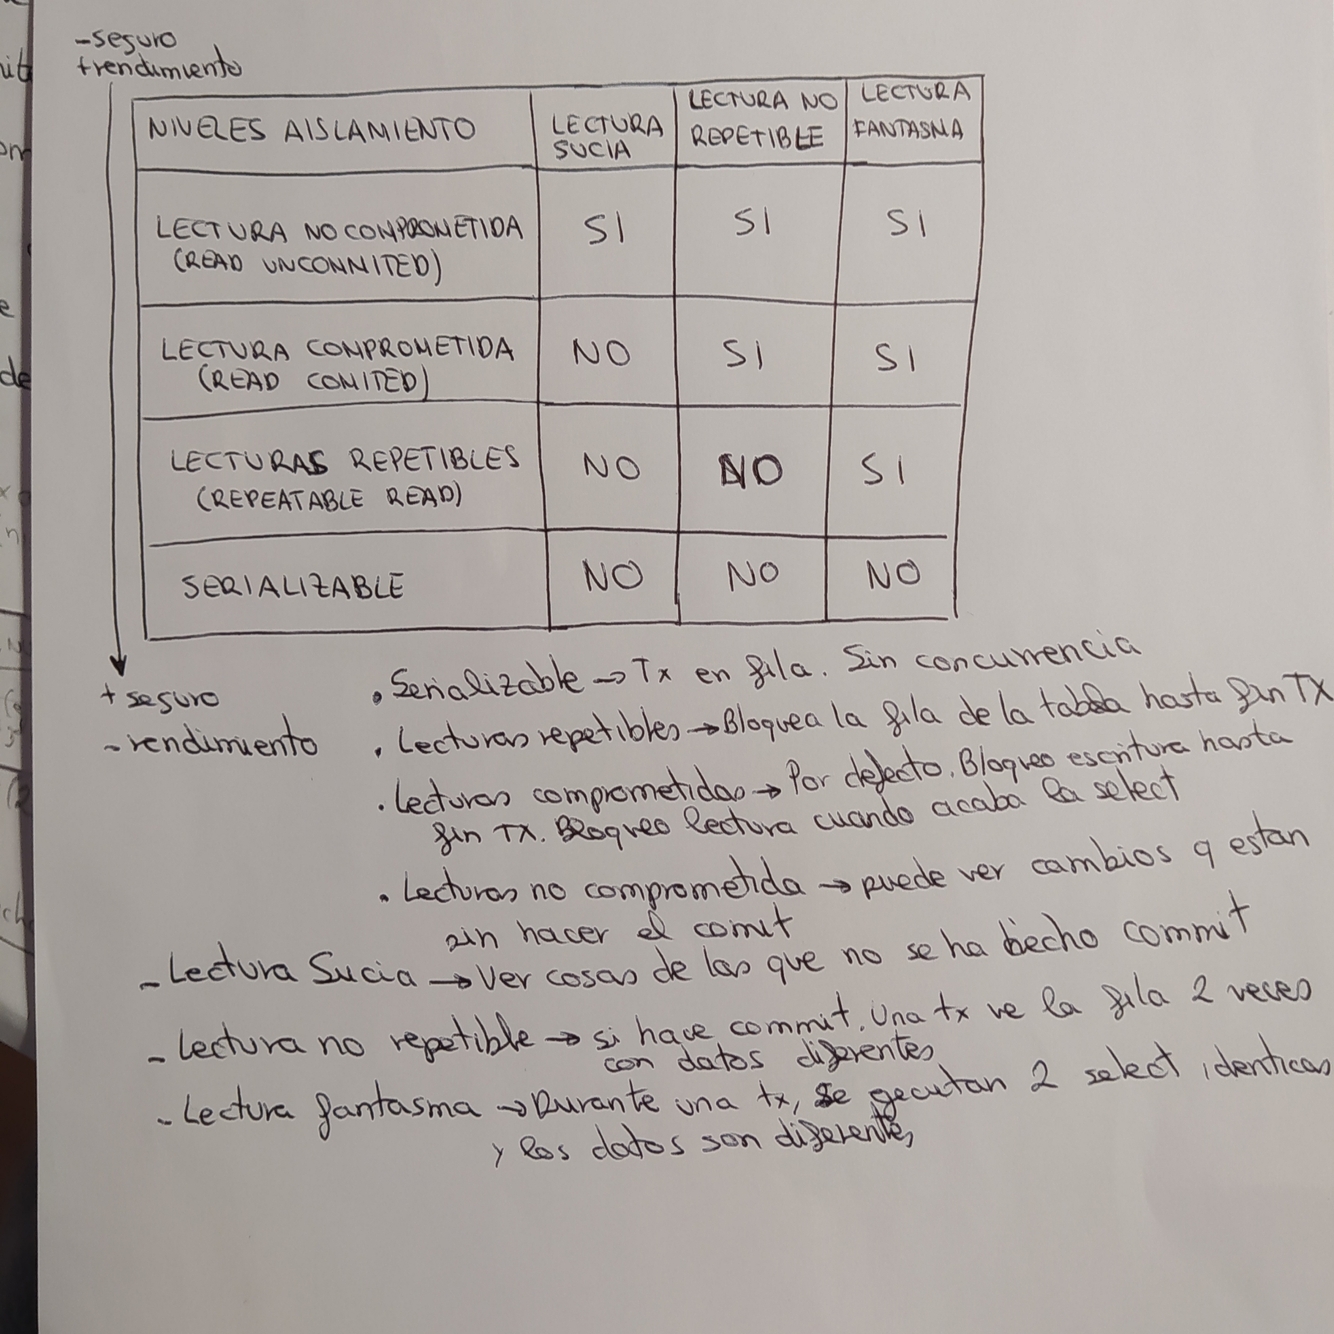 -seguro
+rendimiento
NIVELES AISLAMIENTO
LECTURA SUCIA
LECTURA NO REPETIBLE
LECTURA FANTASMA
LECTURA NO COMPROMETIDA (READ UNCONMITED)
SI
SI
SI
LECTURA COMPROMETIDA (READ COMITED)
NO
SI
SI
LECTURAS REPETIBLES (REPEATABLE READ)
NO
NO
SI
SERIALIZABLE
NO
NO
NO
+ seguro
- rendimiento
. Serializable → Tx en fila. Sin concurrencia
. Lecturas repetibles → Bloquea la fila de la tabla hasta fin TX
. Lecturas comprometidas → Por defecto. Bloqueo escritura hasta
fin TX. Bloqueo lectura cuando acaba la select
. Lecturas no comprometida → puede ver cambios q estan
sin hacer el comit
- Lectura Sucia → Ver cosas de las que no se ha hecho commit
- Lectura no repetible → si hace commit. Una tx ve la fila 2 veces
con datos diferentes
- Lectura fantasma → Durante una tx, se gecutan 2 select identicas
y los datos son diferentes